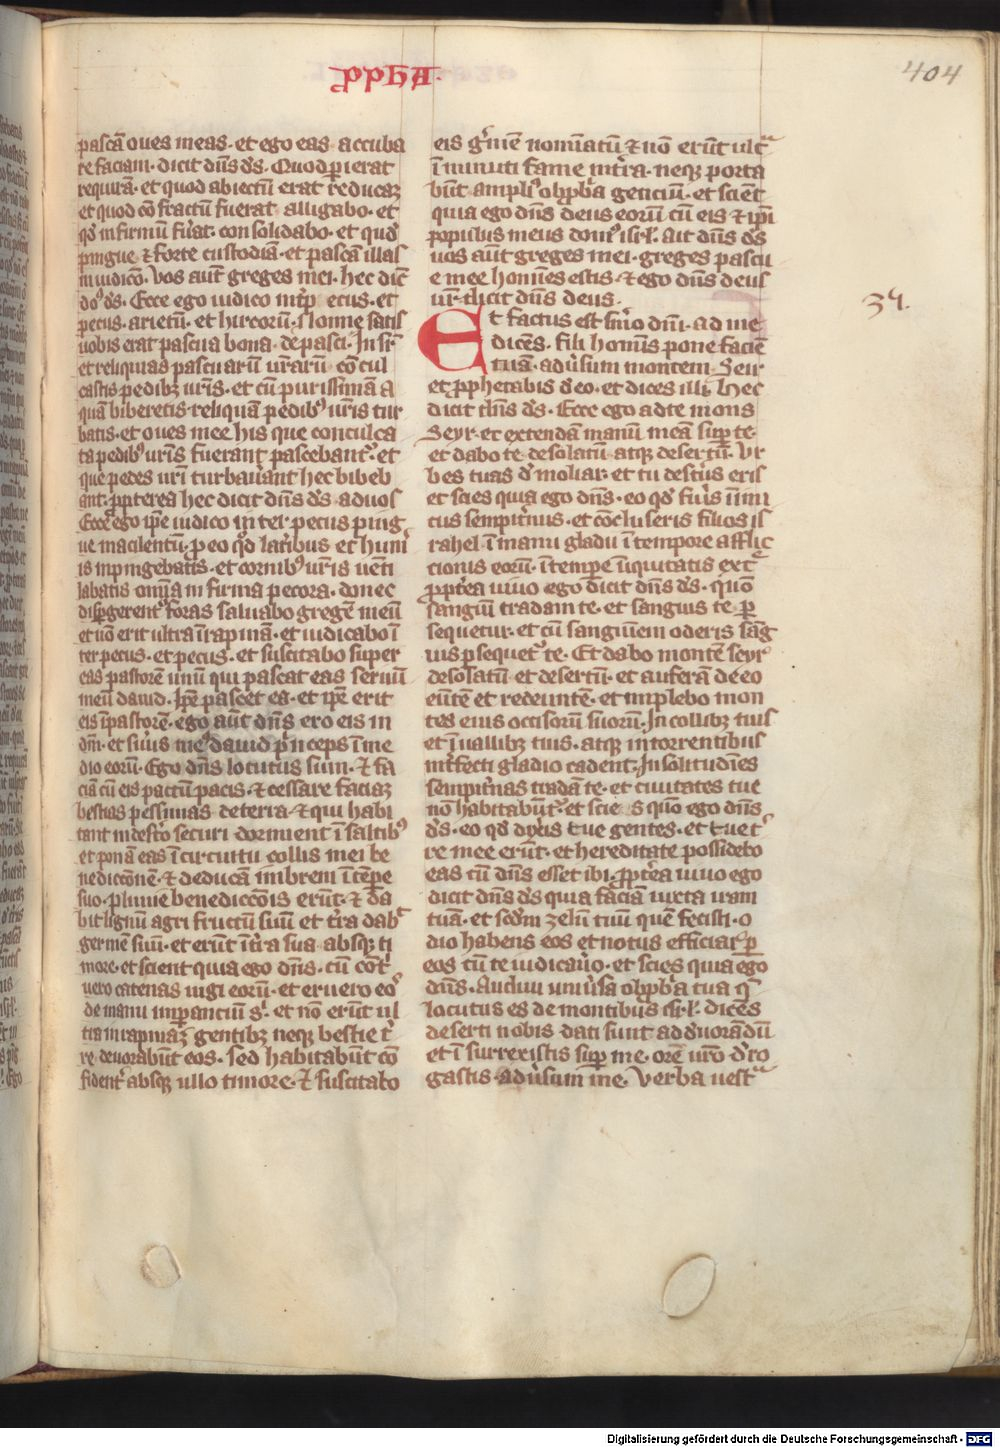 ꝓpħA·
404
pascā oues meas· et ego eas accuba
re faciam· dicit dn̄s d̄s· Quod ꝑierat
requirā· et quod abiectū erat reducaꝫ
et quod cōfractū fuerat alligabo· et
qd̓ infirmū fu̓at consolidabo· et quod
pingue ⁊ forte custodiā· et pascā illas
in iudicō· Vos aūt greges mei· hec dic̄
dn̄s d̄s· Ecce ego iudico int̓ pecus· et
pecus· arietū· et hircorū· Nonne satis
uobis erat pascua bona depasci· Insr̄
et reliquias pascuarū ur̄arū cōcul
castis pedibꝫ ur̄is· et cū purissimā a
quā biberetis· reliquā pedibꝰ ur̄is tur
batis· et oues mee his que conculca
ta pedibꝰ ur̄is fuerant pascebant᷑· et
que pedes ur̄i turbauāant hec bibeb
ant· ꝓpterea hec dicit dn̄s d̄s ad uos
Ecce ego ip̄e iudico inter pecus ping
ue macilentū· ꝓ eo qd̓ laterībus et hum̓
is inpingebatis· et cornibꝰ ur̄is uenti
labatis omīa infirma pecora· donec
disꝑgerent᷑ foras saluabo gregē meū
et nō erit ultra ī rapinā· et iudicabo ī
ter pecus· et pecus· et suscitabo super
eas pastorē unū qui pascat eas seruū
meū dauid· Ip̄e pascet ea· et ip̄e erit
eis ī pastorē· ego aūt dn̄s ero eis in
dm̄· et su̓us meꝰ dauid pn̓ceps ī me
dio eorū· Ego dn̄s locutus sum· ⁊ fa
ciā cū eis pactū pacis· ⁊ cessare faciaꝫ
bestias pessimas de terra· ⁊ qui habi
tant in deserto securi dormient ī saltibꝰ
et ponā eas ī circuitu collis mei be
nediccionē· ⁊ deducā imbrem ī tēpe
suo· pluuie benediccōis erūt· ⁊ da
bit lignū agri fructū suū et tr̓a dab᷑
germē suū· et erūt ī tr̓a sua absqꝫ ti
more· et scient quia ego dn̄s· cū cōt᷑
uero catenas iugi eorū· et eruero eoꝰ
de manu imꝑanciū s᷑· et nō erūt ul
tra in rapinaꝫ gentibꝫ neqꝫ bestie t᷑
re deuorabūt eos· sed habitabūt cō
fident᷑ absqꝫ ullo timore· ⁊ suscitabo
eis g̓mē nomīatū ⁊ nō erūt ult᷑
īminuti fame int̓ra· neqꝫ porta
būt ampliꝰ obꝓbr̓a genciū· et scient
quia ego dn̄s deus eorū cū eis ⁊ ip̄i
populus meus domꝰ isrl̄· Ait dn̄s d̄s
uos aūt greges mei· greges pascu
e mee homīes estis· ⁊ ego dn̄s deus
ur̄· dicit dn̄s deus·
34.
Et factus est sm̓o dn̄i· ad me
dicēs· fili homīs pone faciē
tuā· adu̓sum montem Seir
et ꝓphetabis de eo· et dices illi, hec
dicit dn̄s d̄s· Ecce ego ad te mons
Seyr· et extendā manū meā suꝑ te
et dabo te desolatū atqꝫ desertū· Vr
bes tuas d̓moliar· et tu des̓tus eris
et scies quia ego dn̄s· eo qd̓ fu̓is inimi
cus sempit̓nus· et cōcluseris filios is
rahel ī manu gladii ī tempore afflic
cionis eorū· ī tempe īiquitatis ext᷑
ꝓpt̓ea uiuo ego dicit dn̄s d̄s· quō
sanguī tradam te· et sanguis te ꝑ
sequetur· et cū sanguīem oderis sāg
uis ꝑsequet᷑ te· Et dabo montē seyr
desolatū et desertū· et auferā de eo
eūtē et redeuntē· et implebo mon
tes eius occisorū suorū· In collibꝫ tuis
et ī uallibꝫ tuis· atqꝫ in torrentibus
int̓fecti gladio cadent· In solitudīes
sempit̓nas tradā te· et ciuitates tue
nō habitabūt᷑· et scies quō ego dn̄s
d̄s· eo qd̓ dix̓is due gentes· et due t᷑
re mee erūt· et hereditate possidebo
eas cū dn̄s esset ibi· ꝓpt̓ea uiuo ego
dicit dn̄s d̄s quia faciā iuxta iram
tuā· et scd̄m zelū tuū quē fecisti· o
dio habens eos et notus efficiar ꝑ
eos cū te iudicau̓o· et scies quia ego
dn̄s· Audiui uniu̓sa obꝓbr̓a tua q̄
locutus es de montibus isrl̄· dicēs
deserti nobis dati sunt ad d̓uorādū
et ī surrexistis suꝑ me· ore ur̄o d̓ro
gastis· adu̓sum me· Verba uest᷑
Digitalisierung gefördert durch die Deutsche Forschungsgemeinschaft - DFG